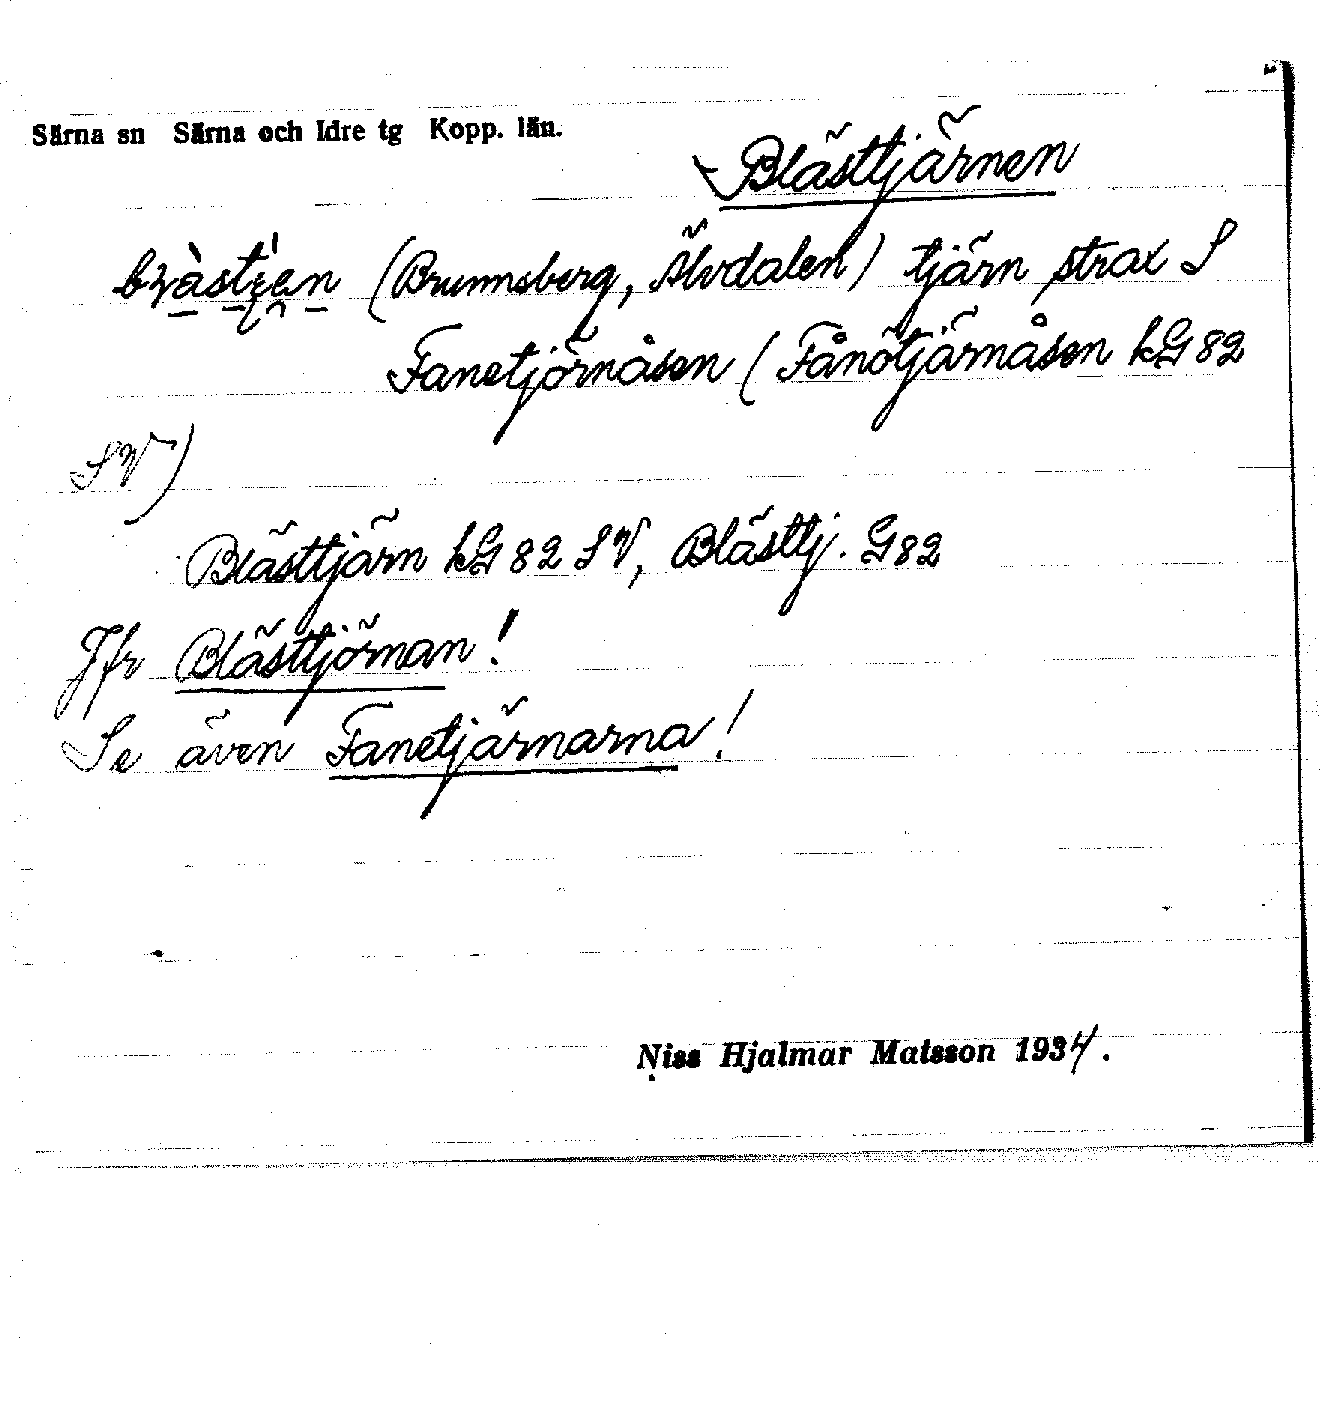 Särna sn Särna och Idre tg Kopp. län.
Blästtjärnen
(Brunnsberg, Älvdalen) tjärn strax S
Fanetjörnåsen (Fånötjärnåsen kG 82
SV)
Blästtjärn kG 82 SV, Blästtj. G 82
Jfr Blästtjörnan!
Se även Fanetjärnarna!
Niss Hjalmar Matsson 1934.